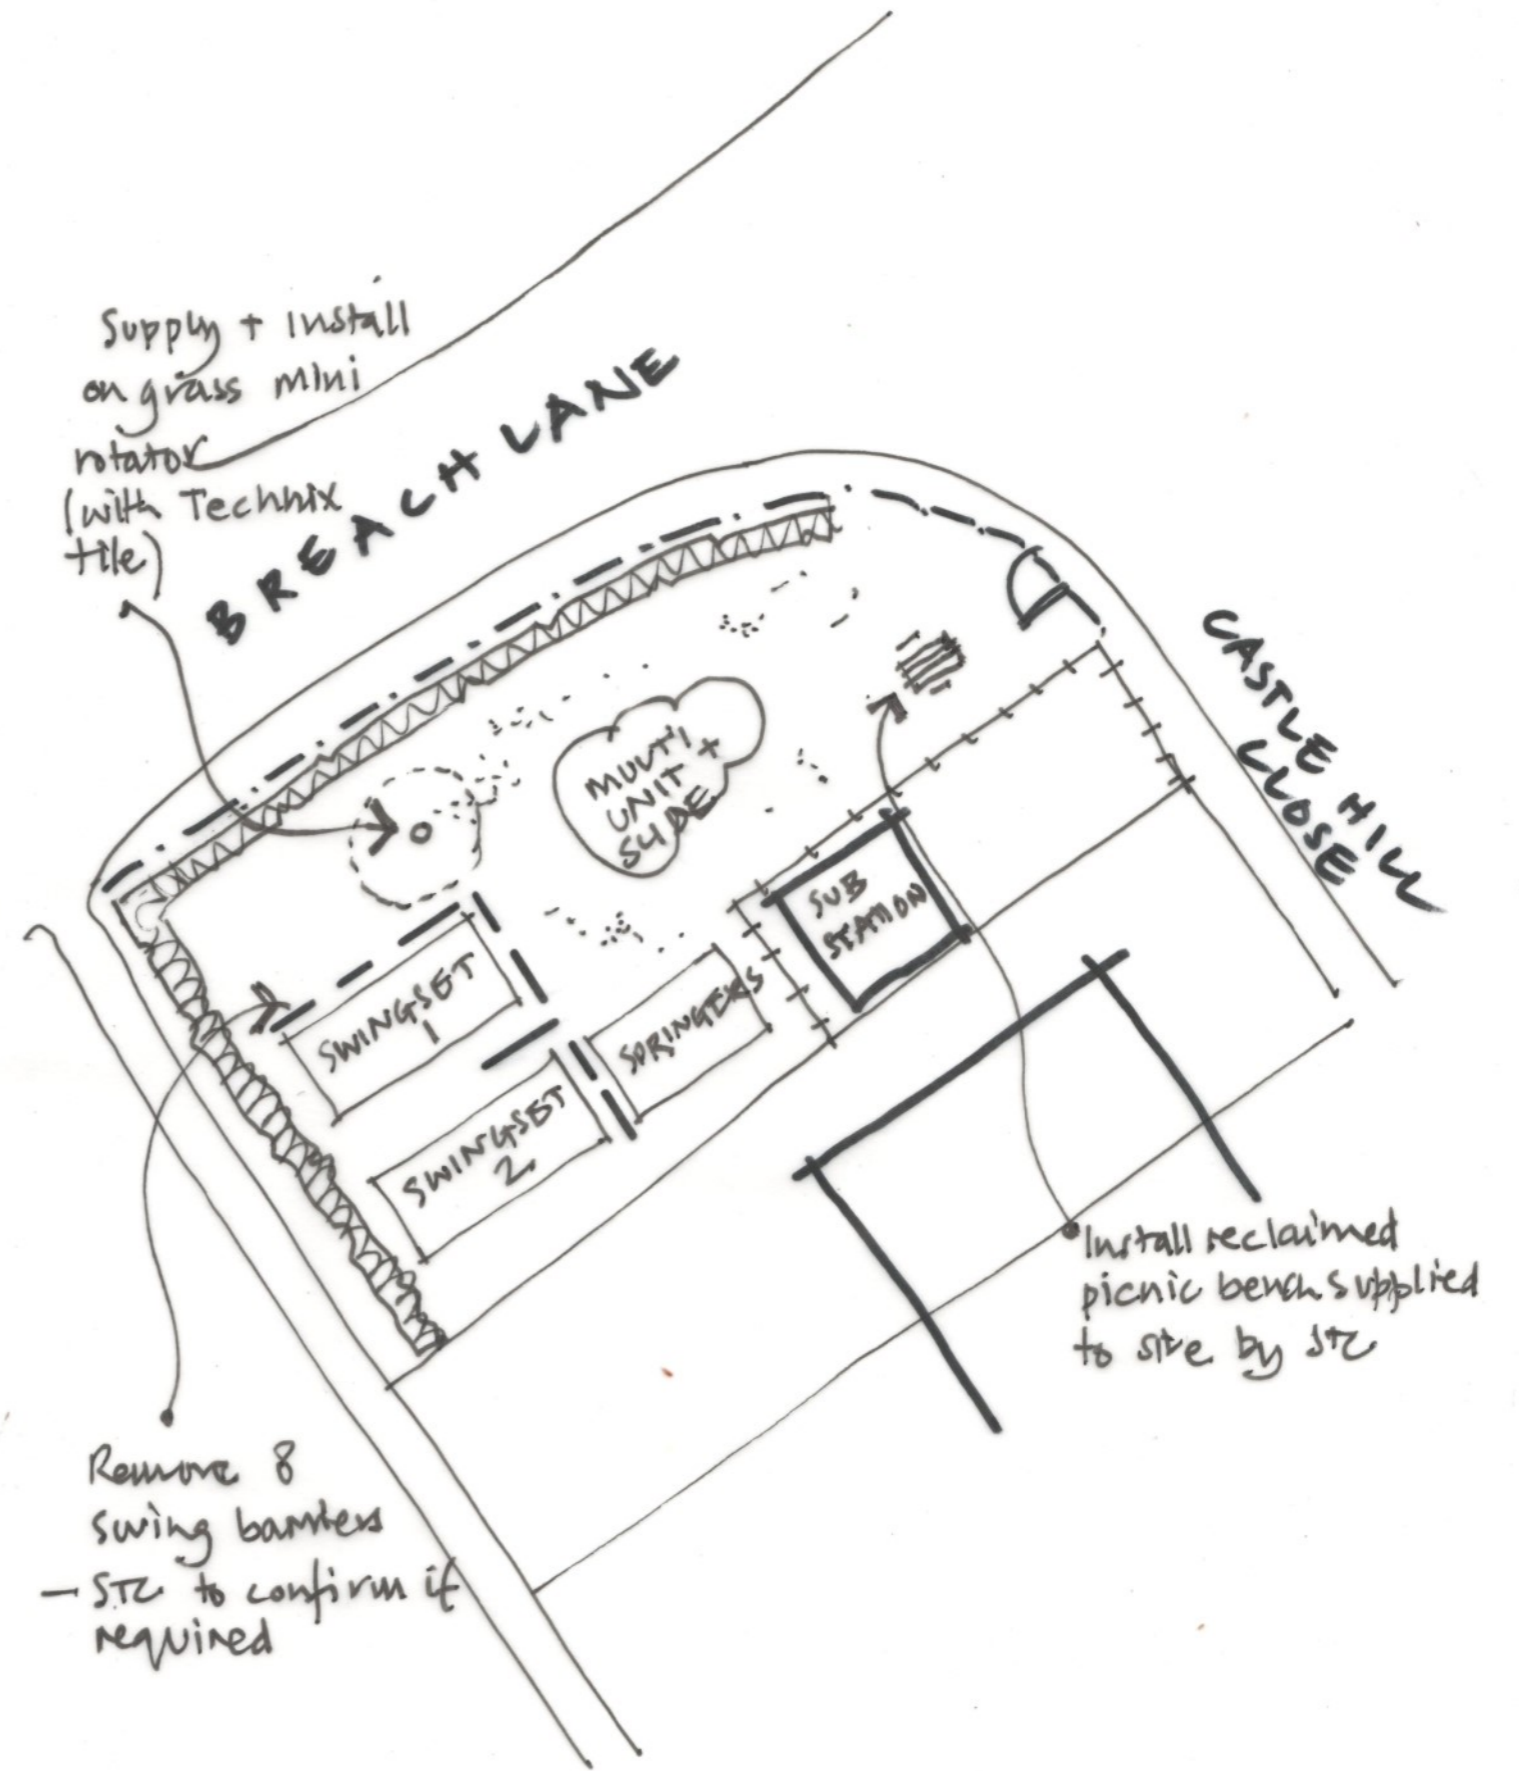 Supply + install
on grass mini
rotator
(with Technix
tile)
BREACH LANE
CASTLE HILL
CLOSE
MULTI
UNIT +
SLIDE
SUB
STATION
SWINGSET
1
SPRINGERS
SWINGSET
2
Install reclaimed
picnic bench supplied
to site by STC
Remove 8
swing barriers
- STC to confirm if
required